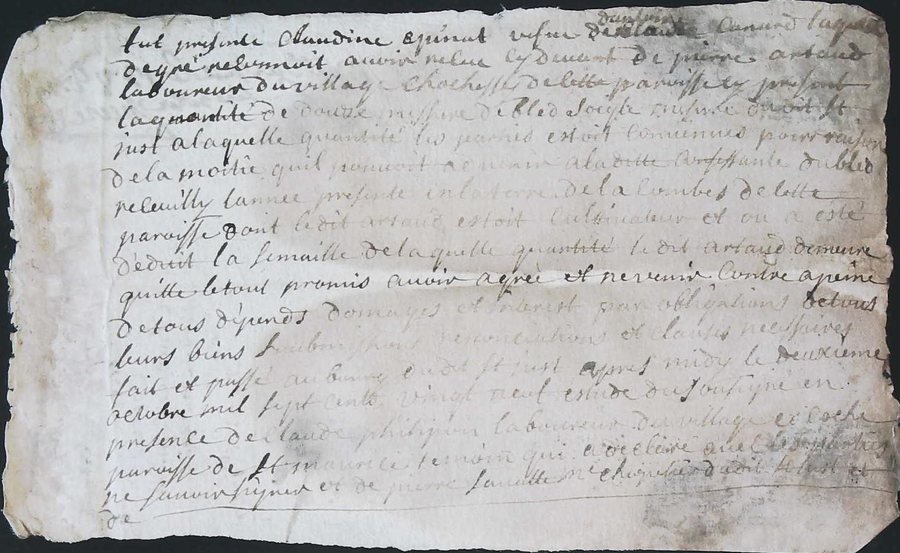 fut presente Claudine Epinat vefue d'antoine Canard laquelle
de gré reconnoit avoir relue cy devant de pierre artaud
laboureur du village Chochesse de cette paroisse cy present
la quantité de douze messure de bled soigle mesure dudit St
just a laquelle quantité les parties estoit convenues pour raison
de la moitié quil pouvoit advenir a la ditte Confessante du bled
releuilly lannee presente en la terre de la Combes de cette
paroisse dont ledit artaud estoit Cultivateur et ou a esté
déduit la semaille de laquelle quantité le dit artaud demeure
quitte le tout promis avoir agréé et ne venir Contre a peine
de tous dépends domages et interest par obligations de tous
leurs biens soubmissions renonciations et clauses necessaires
fait et passé au bourg dudit St just apres midy le deuxième
octobre mil sept cent vingt neuf etude du soussigné en
presence de Claude philipon laboureur du village
paroisse de St maurice temoin qui a declaré avec les parties
ne sauvoir signer et de pierre me dudit St just et
de